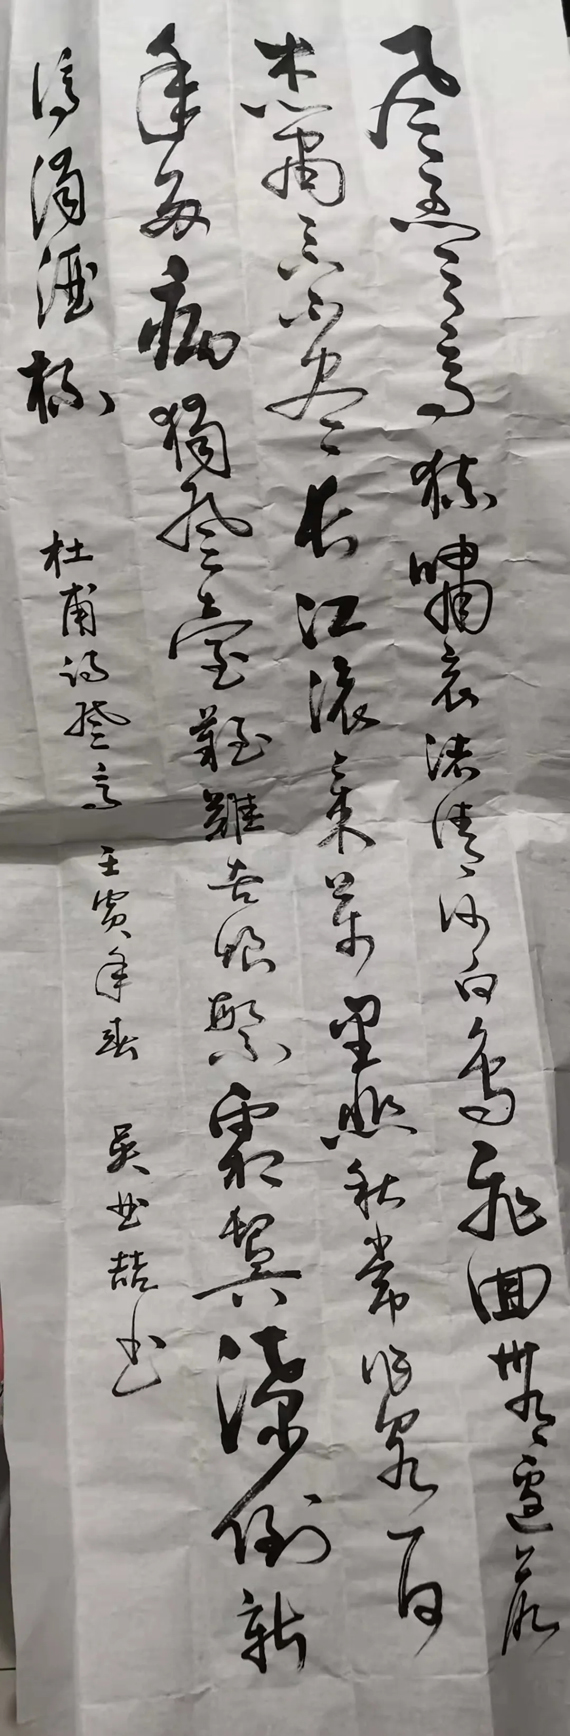 风急天高猿啸哀渚清沙白鸟飞回无边落
木萧萧下不尽长江滚来万里悲秋常作客百
年多病独登台艰难苦恨繁霜鬓潦倒新
停浊酒杯
杜甫诗登高 壬寅年春 吴世喆书